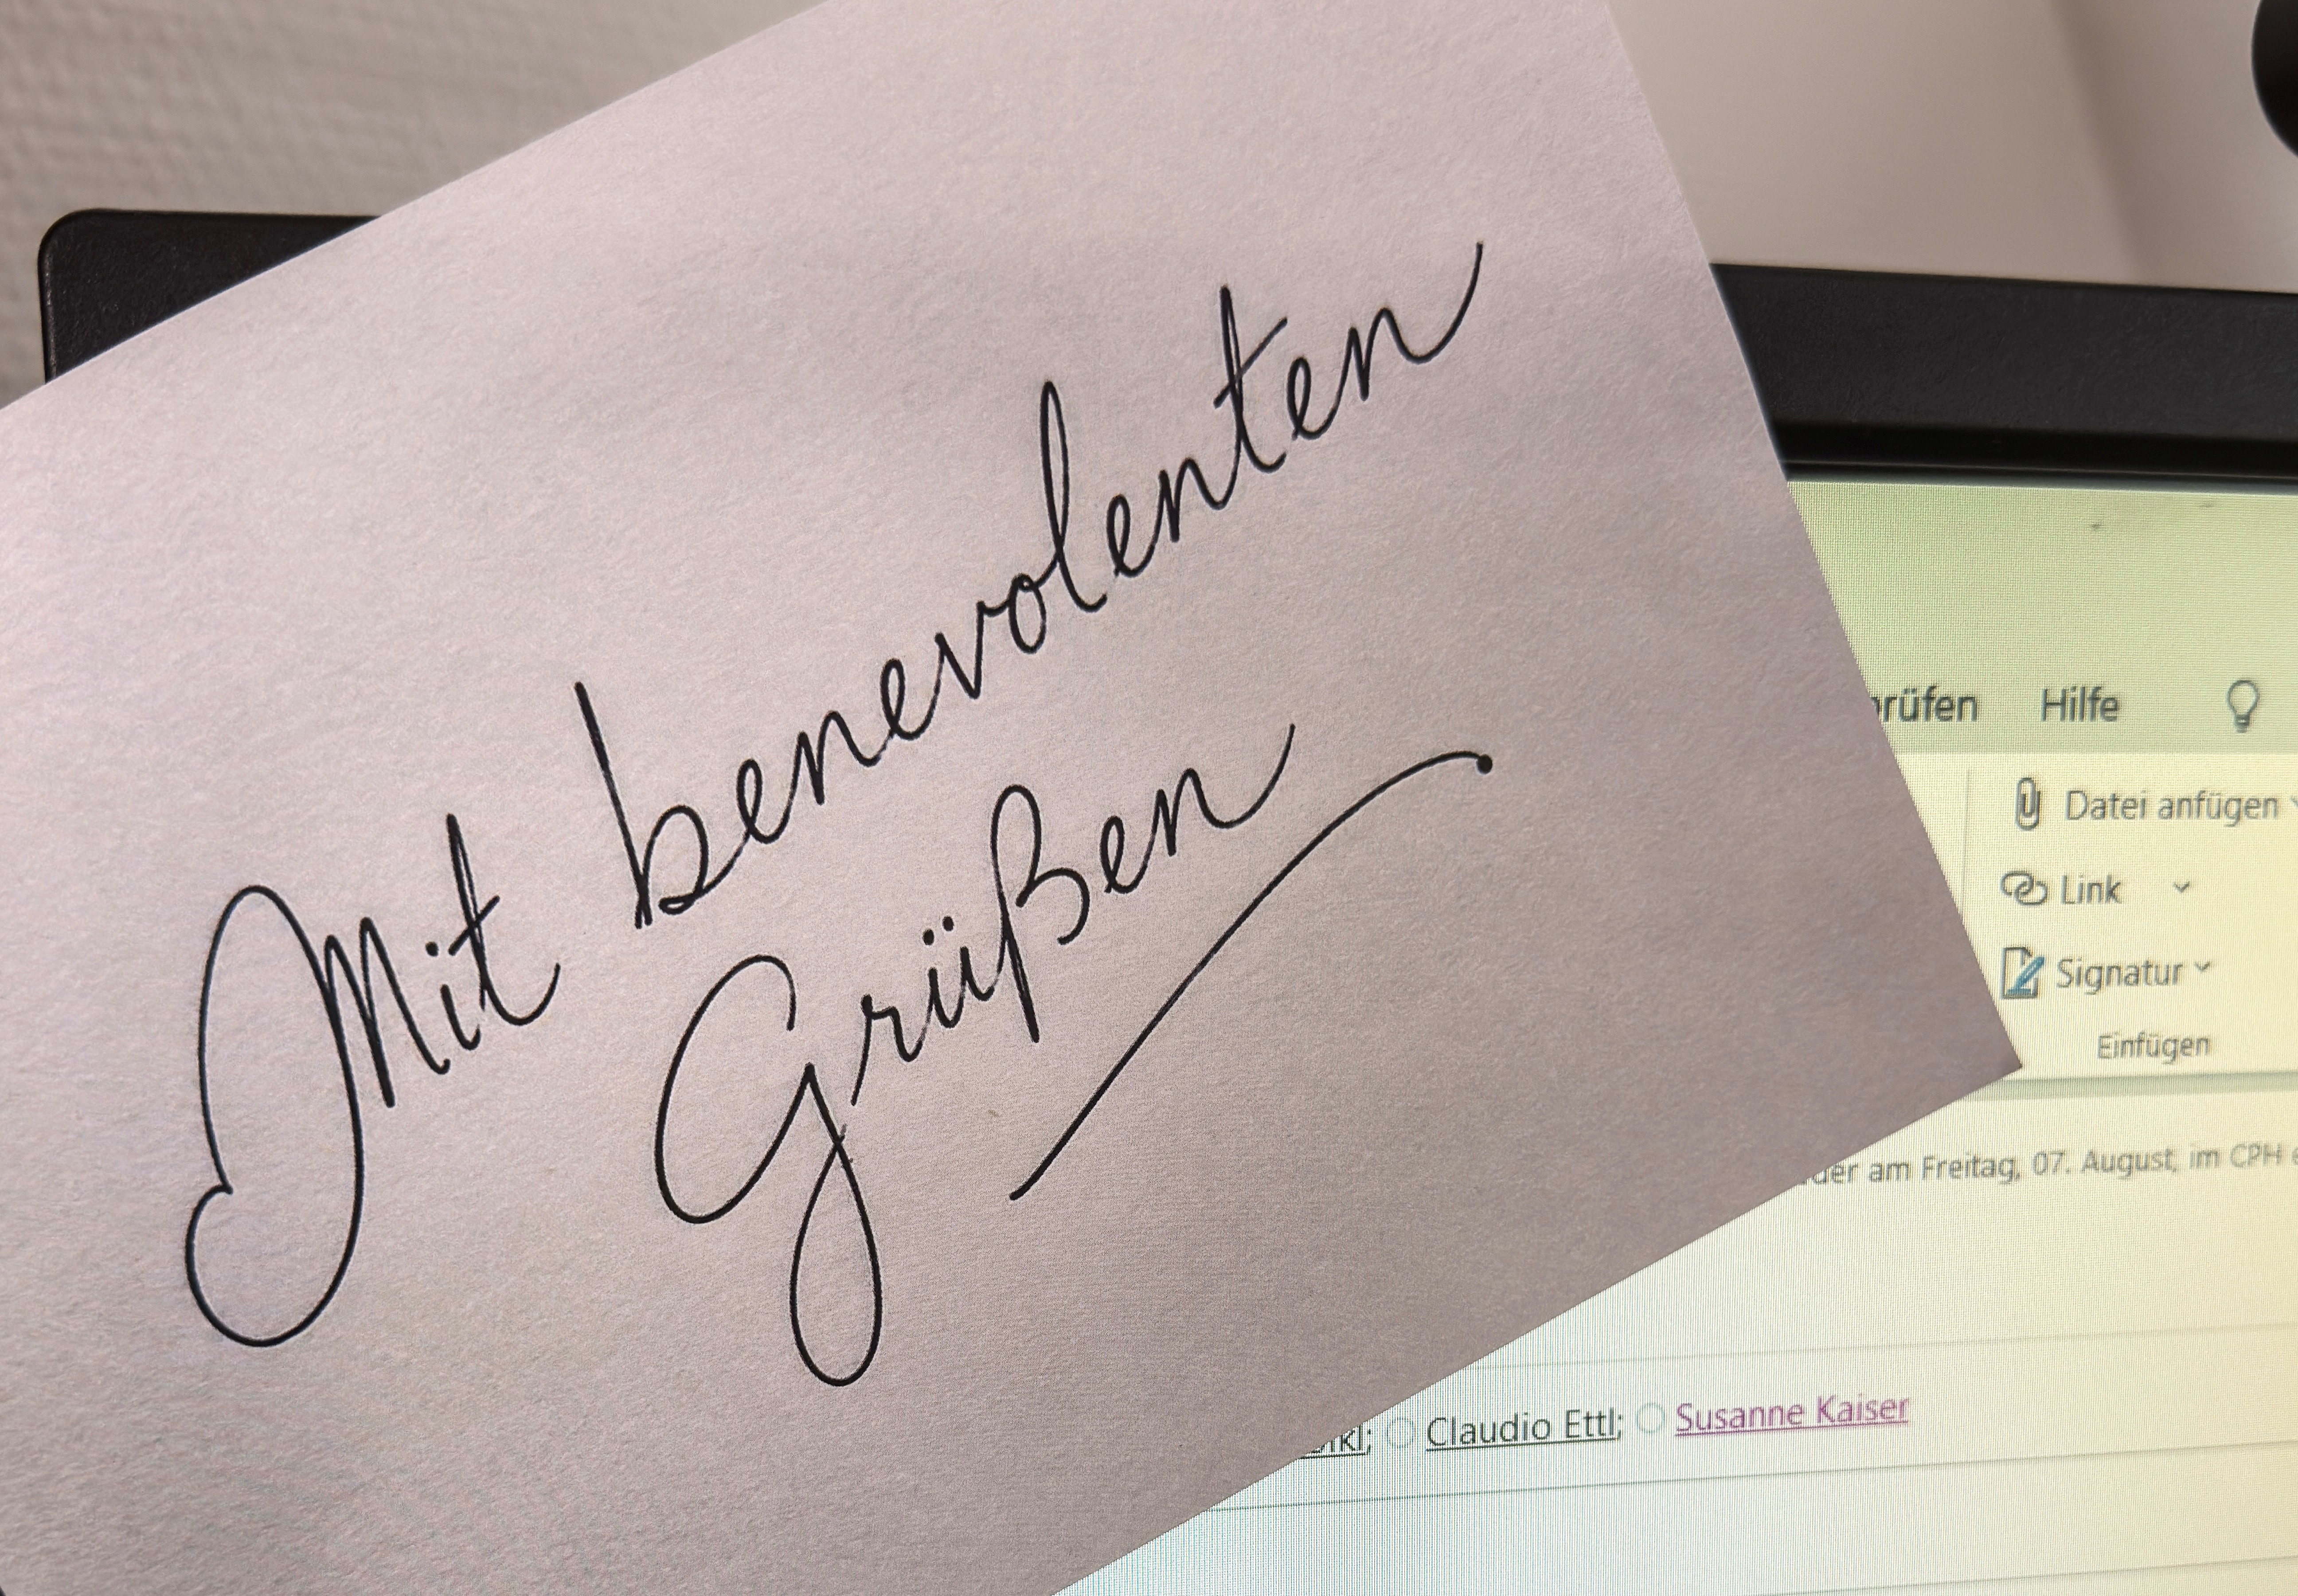 Mit benevolenten
Grüßen
Hilfe
Datei anfügen
Link
Signatur
Einfügen
am Freitag, 07. August, im CPH
Claudio Ettl; Susanne Kaiser